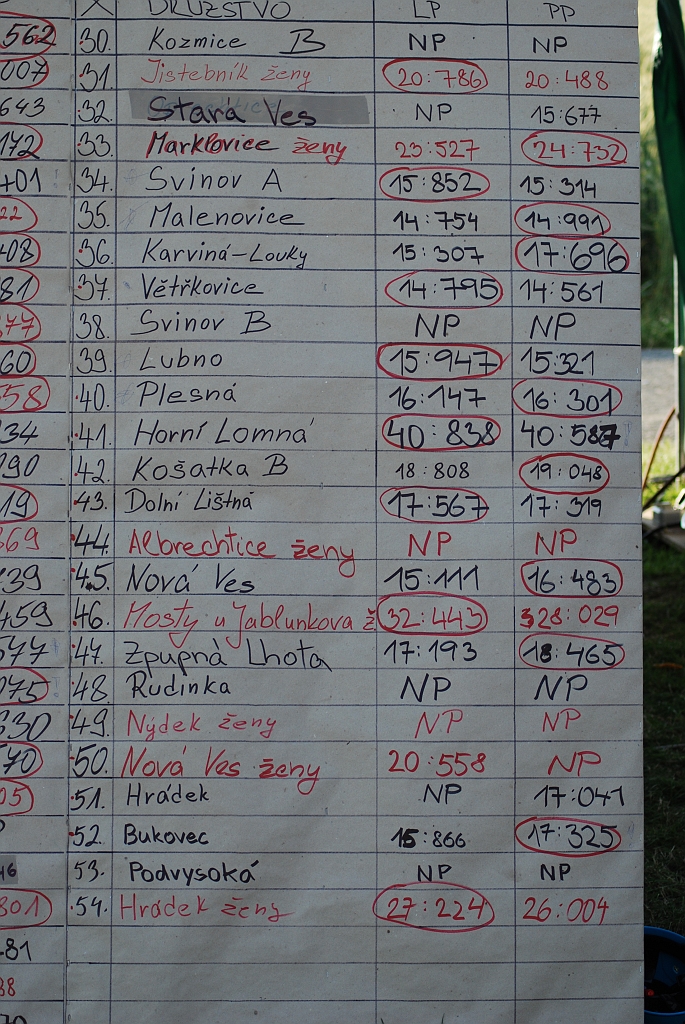 DRUŽSTVO LP PP
562 30. Kozmice B NP NP
007 31. Jistebník ženy 20:786 20:488
643 32. Stará Ves NP 15:677
172 33. Marklovice ženy 23:527 24:732
401 34. Svinov A 15:852 15:314
22 35. Malenovice 14:754 14:991
408 36. Karviná-Louky 15:307 17:696
81 37. Větřkovice 14:795 14:561
77 38. Svinov B NP NP
60 39. Lubno 15:947 15:321
58 40. Plesná 16:147 16:301
34 41. Horní Lomná 40:838 40:587
90 42. Košatka B 18:808 19:048
19 43. Dolní Lištná 17:567 17:319
369 44. Albrechtice ženy NP NP
39 45. Nová Ves 15:111 16:483
459 46. Mosty u Jablunkova ž 32:443 28:029
577 47. Zpupná Lhota 17:193 18:465
075 48. Rudinka NP NP
830 49. Nýdek ženy NP NP
70 50. Nová Ves ženy 20:558 NP
05 51. Hrádek NP 17:041
52. Bukovec 15:866 17:325
46 53. Podvysoká NP NP
801 54. Hrádek ženy 27:224 26:004
81
38
70